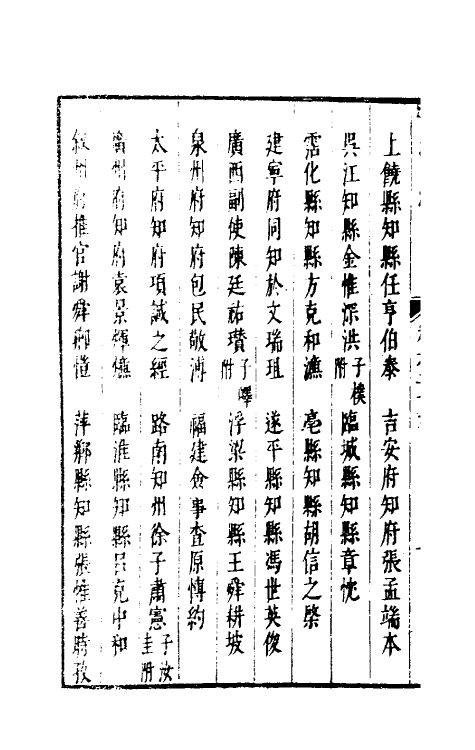 上饒縣知縣任亨伯泰 吉安府知府張孟端本
吳江知縣金惟深洪子樸附 臨城縣知縣章忱
霑化縣知縣方克和濂 亳縣知縣胡信之棨
建寧府同知於文瑞珇 遂平縣知縣馮世英俊
廣西副使陳廷祐瓚子嶧附 浮梁縣知縣王舜耕坡
泉州府知府包民敬溥 福建僉事查原博約
太平府知府項誠之經 路南知州徐子肅憲子汝圭附
州府知府袁景輝 臨淮縣知縣呂克中和
州府推官謝舜卿 萍鄉縣知縣張惟善時孜